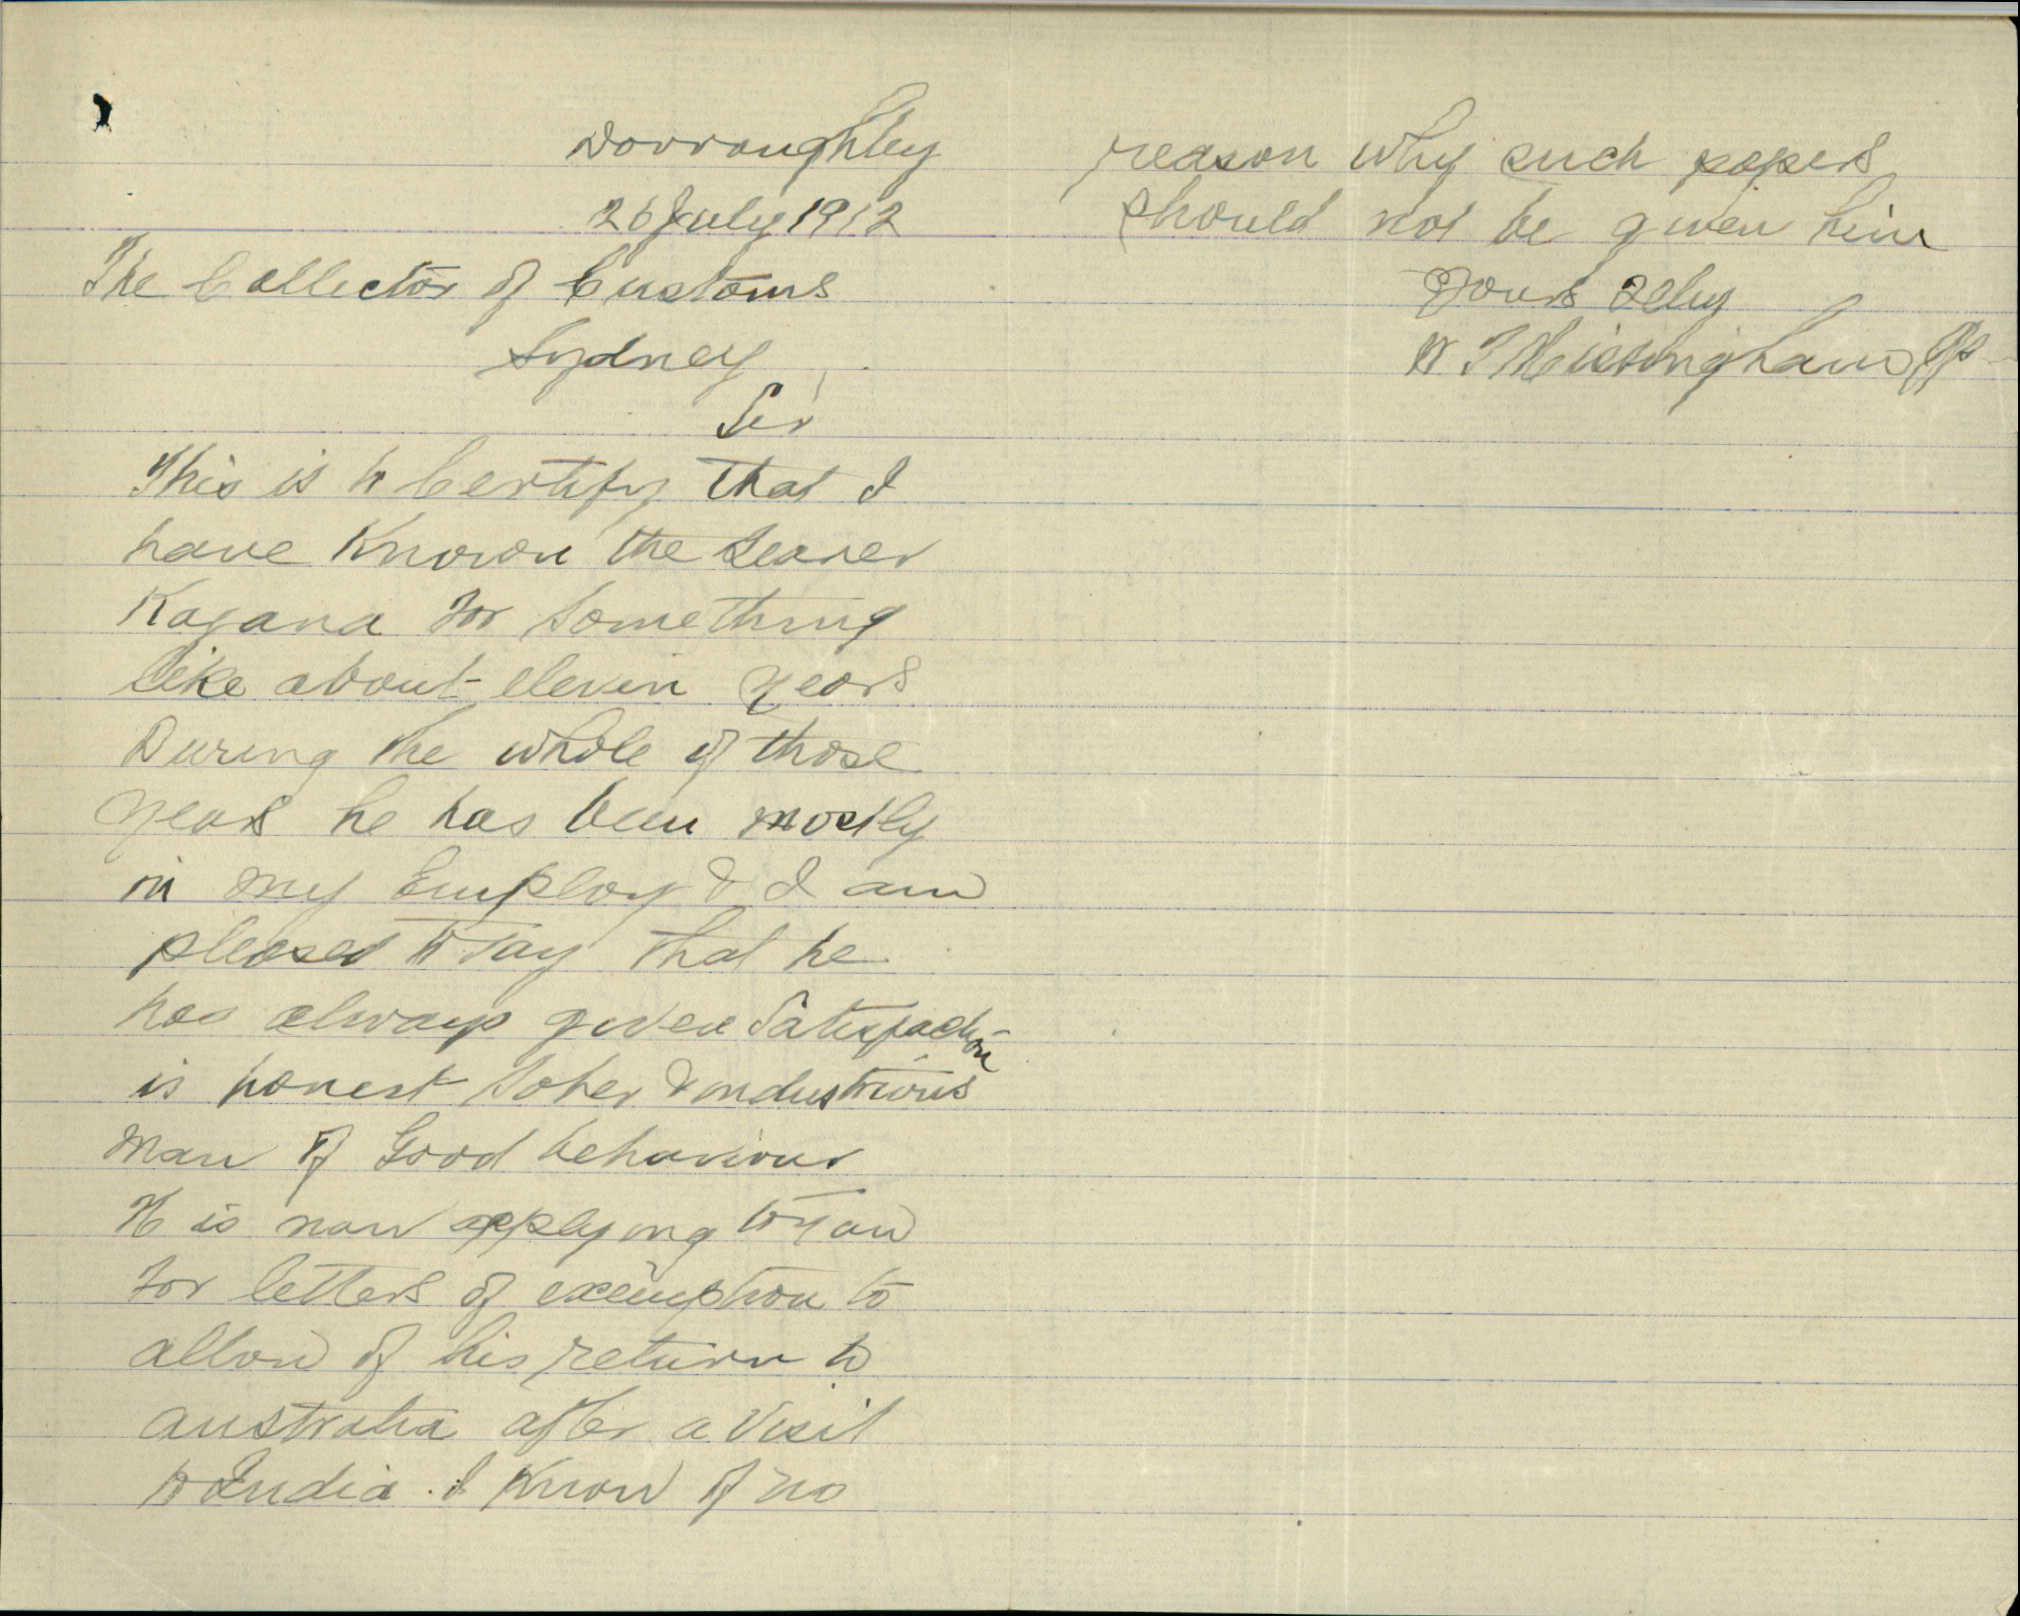 Dorroughby
26 July 1912
The Collector of Customs
Sydney
Sir
This is to Certify that I
have Known the bearer
Kagana for Something
like about eleven years
During the whole of those
years he has been mostly
in my Employ & I am
pleased to say that he
has always given Satisfaction
is honest Sober & industrious
man of Good behaviour
He is now applying to you
for letters of exemption to
allow of his return to
australia after a Visit
to India . I Know of no
reason why such papers
should not be given him
Yours
W T Missingham JP